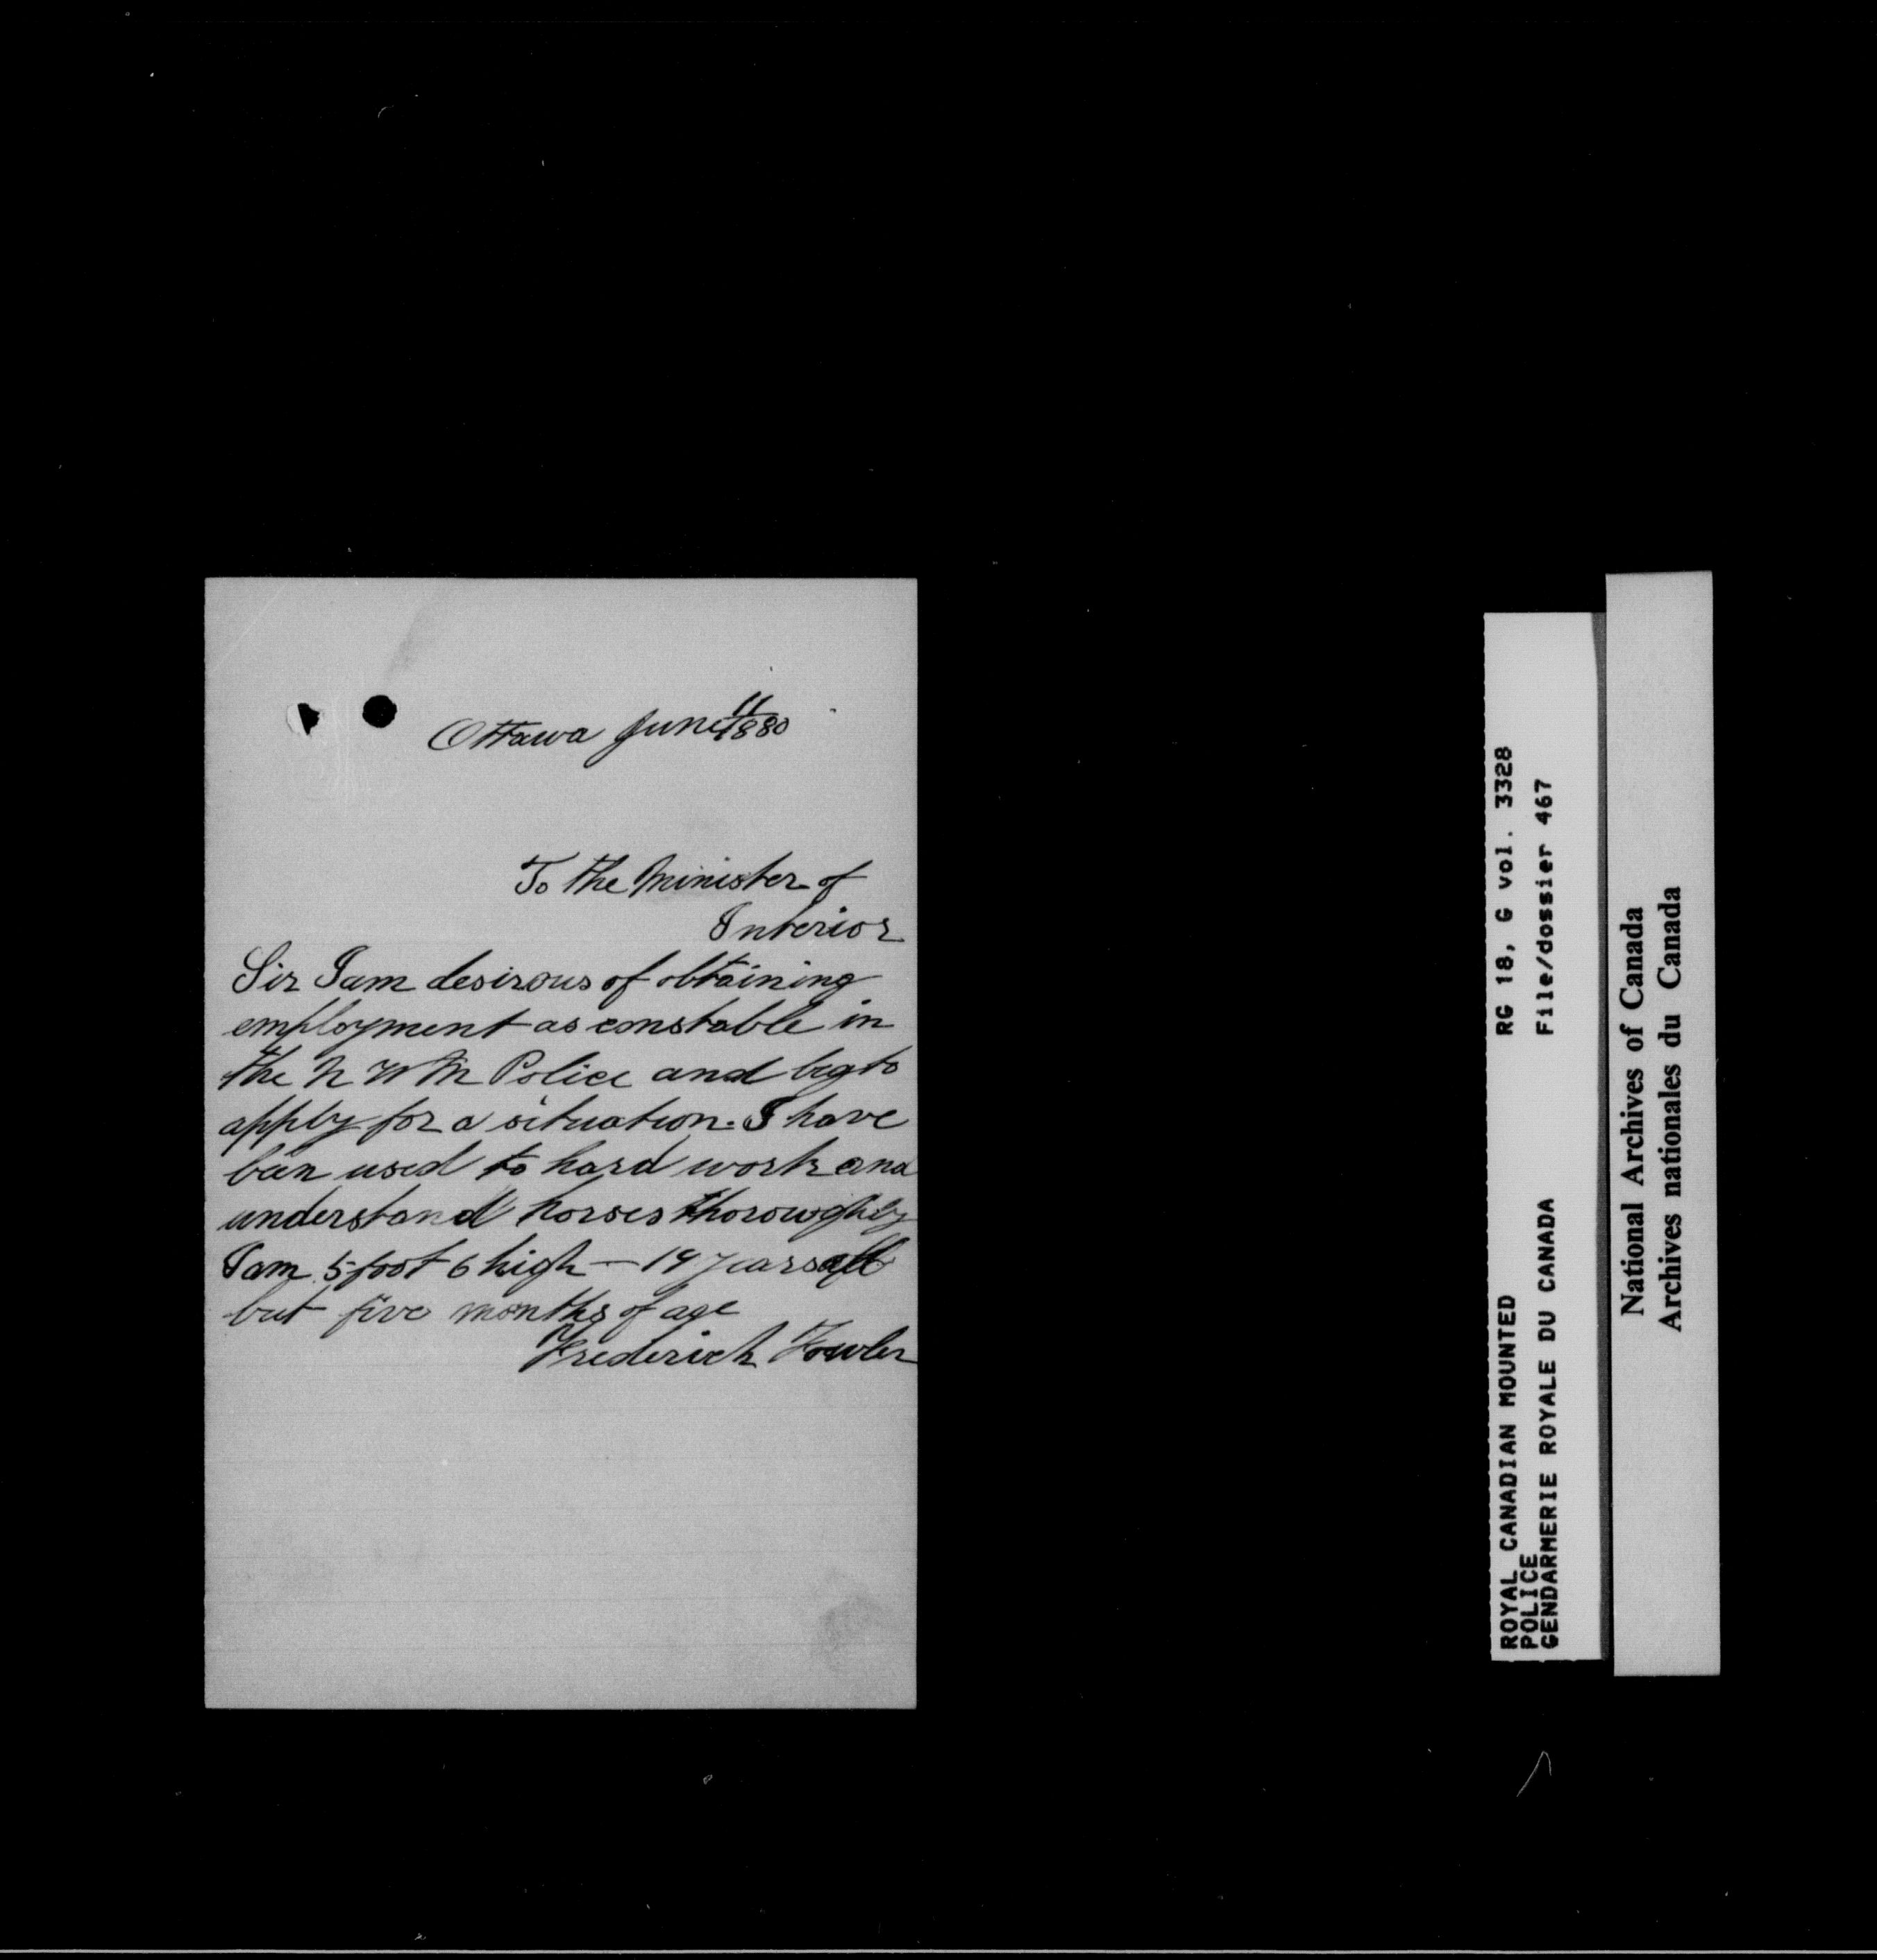 Ottawa June 11
1880
To the Minister of
Interior
Sir I am desirous of obtaining
employment as constable in
the N W M Police and beg to
apply for a situation. I have
been used to hard work and
understand horses thoroughly
I am 5 foot 6 high — 19 years all
but five months of age
Frederick Fowler
ROYAL CANADIAN MOUNTED
POLICE
GENDARMERIE ROYALE DU CANADA
RG 18, G vol. 3328
File/dossier 467
National Archives of Canada
Archives nationales du Canada